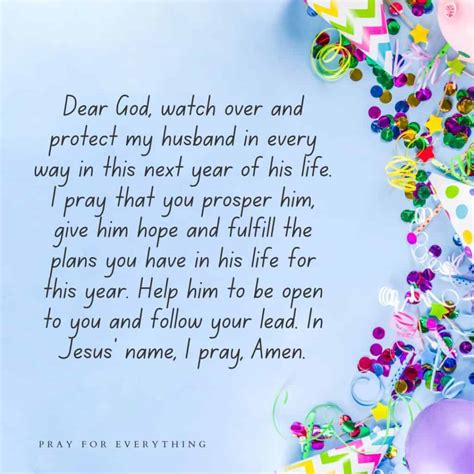 Dear God, watch over and
protect my husband in every
way in this next year of his life.
I pray that you prosper him,
give him hope and fulfill the
plans you have in his life for
this year. Help him to be open
to you and follow your lead. In
Jesus' name, I pray, Amen.
PRAY FOR EVERYTHING